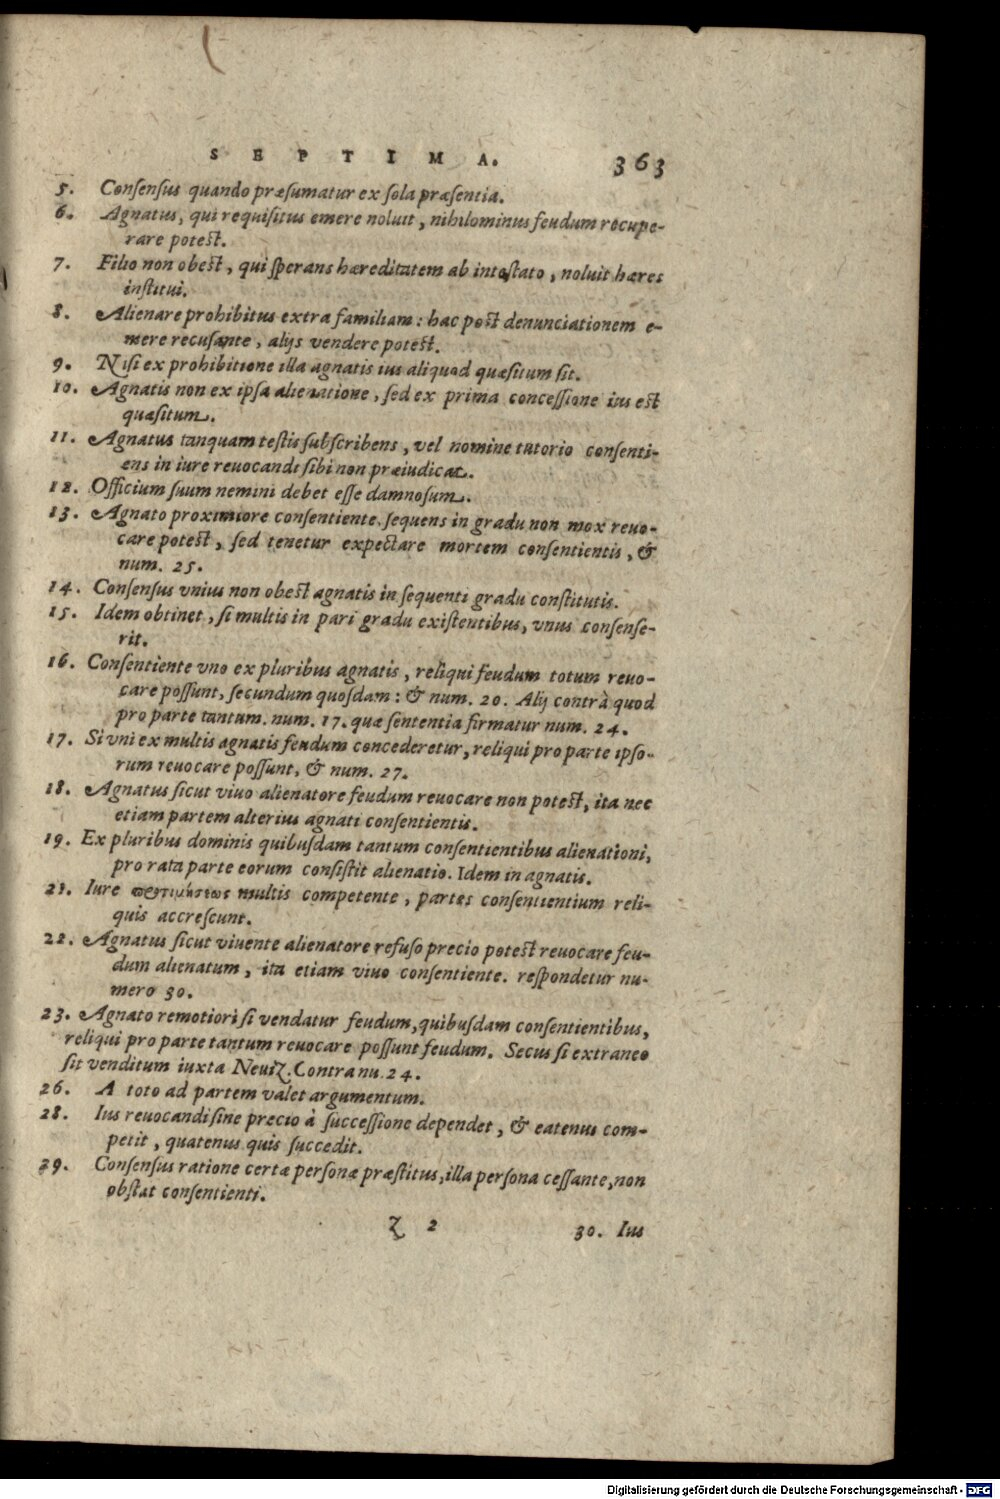 SEPTIMA. 363
5. Conſenſus quando præſumatur ex ſola præſentia.
6. Agnatus, qui requiſitus emere noluit, nihilominus feudum recupe-
rare poteſt.
7. Filio non obeſt, qui ſperans hæreditatem ab inteſtato, noluit hæres
inſtitui.
8. Alienare prohibitus extra familiam: hac poſt denunciationem e-
mere recuſante, alijs vendere poteſt.
9. Niſi ex prohibitione illa agnatis ius aliquod quæſitum ſit.
10. Agnatis non ex ipſa alienatione, ſed ex prima conceſſione ius eſt
quæſitum.
11. Agnatus tanquam teſtis ſubſcribens, vel nomine tutorio conſenti-
ens in iure reuocandi ſibi non præiudicat.
12. Officium ſuum nemini debet eſſe damnoſum.
13. Agnato proximiore conſentiente, ſequens in gradu non mox reuo-
care poteſt, ſed tenetur expectare mortem conſentientis, &
num. 25.
14. Conſenſus vnius non obeſt agnatis in ſequenti gradu conſtitutis.
15. Idem obtinet, ſi multis in pari gradu exiſtentibus, vnus conſenſe-
rit.
16. Conſentiente vno ex pluribus agnatis, reliqui feudum totum reuo-
care poſſunt, ſecundum quoſdam: & num. 20. Alij contrà quod
pro parte tantum. num. 17. quæ ſententia firmatur num. 24.
17. Si vni ex multis agnatis feudum concederetur, reliqui pro parte ipſo-
rum reuocare poſſunt, & num. 27.
18. Agnatus ſicut viuo alienatore feudum reuocare non poteſt, ita nec
etiam partem alterius agnati conſentientis.
19. Ex pluribus dominis quibuſdam tantum conſentientibus alienationi,
pro rata parte eorum conſiſtit alienatio. Idem in agnatis.
21. Iure προτιμήσεως multis competente, partes conſentientium reli-
quis accreſcunt.
22. Agnatus ſicut viuente alienatore refuſo precio poteſt reuocare feu-
dum alienatum, ita etiam viuo conſentiente. reſpondetur nu-
mero 30.
23. Agnato remotiori ſi vendatur feudum, quibuſdam conſentientibus,
reliqui pro parte tantum reuocare poſſunt feudum. Secus ſi extraneo
ſit venditum iuxta Neuiz. Contra nu. 24.
26. A toto ad partem valet argumentum.
28. Ius reuocandi ſine precio à ſucceſſione dependet, & eatenus com-
petit, quatenus quis ſuccedit.
29. Conſenſus ratione certæ perſonæ præſtitus, illa perſona ceſſante, non
obſtat conſentienti.
Z 2 30. Ius
Digitalisierung gefördert durch die Deutsche Forschungsgemeinschaft - DFG